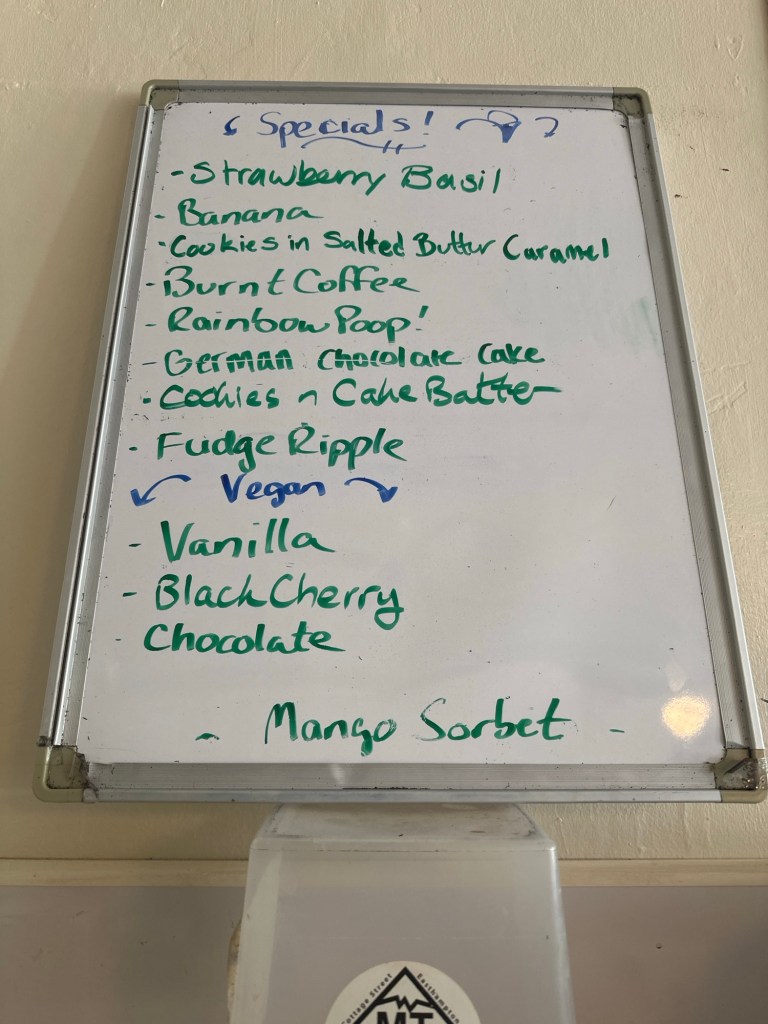 Specials!
- Strawberry Basil
- Banana
· Cookies in Salted Butter Caramel
- Burnt Coffee
- Rainbow Poop!
- German Chocolate Cake
· Cookies n Cake Batter
· Fudge Ripple
Vegan
- Vanilla
- Black Cherry
· Chocolate
- Mango Sorbet -
Cottage Street Easthampton
MT